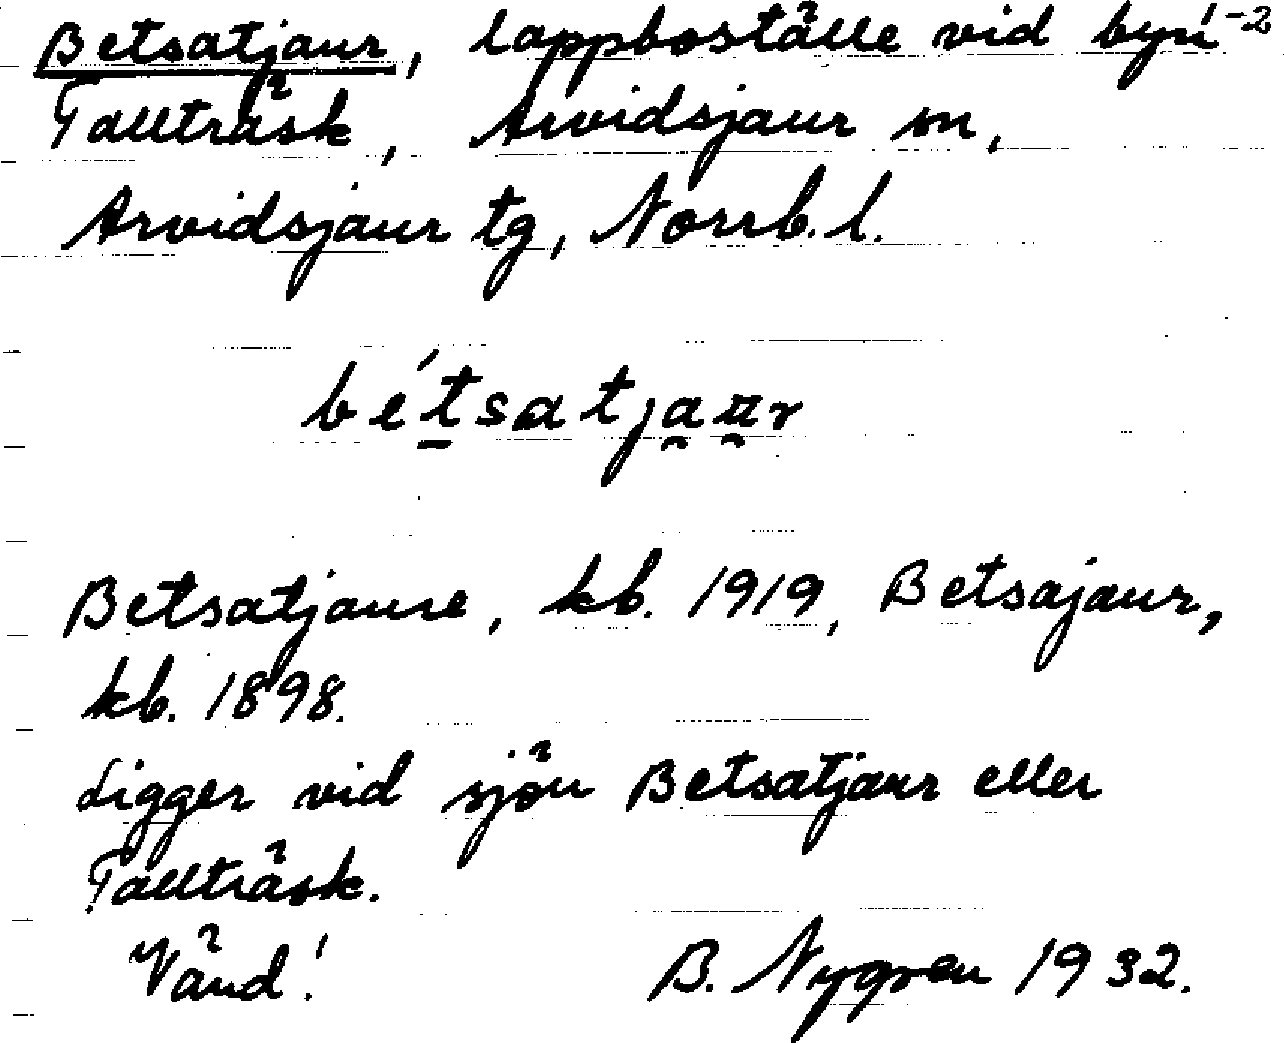 Betsatjaur, lappboställe vid byn 1-2
Tallträsk, Arvidsjaur sn,
Arvidsjaur tg, Norrb. l.
bétsatjaur
Betsatjaure, kb. 1919, Betsajaur,
kb. 1898.
Ligger vid sjön Betsatjaur eller
Tallträsk.
Vänd! B. Nygren 1932.